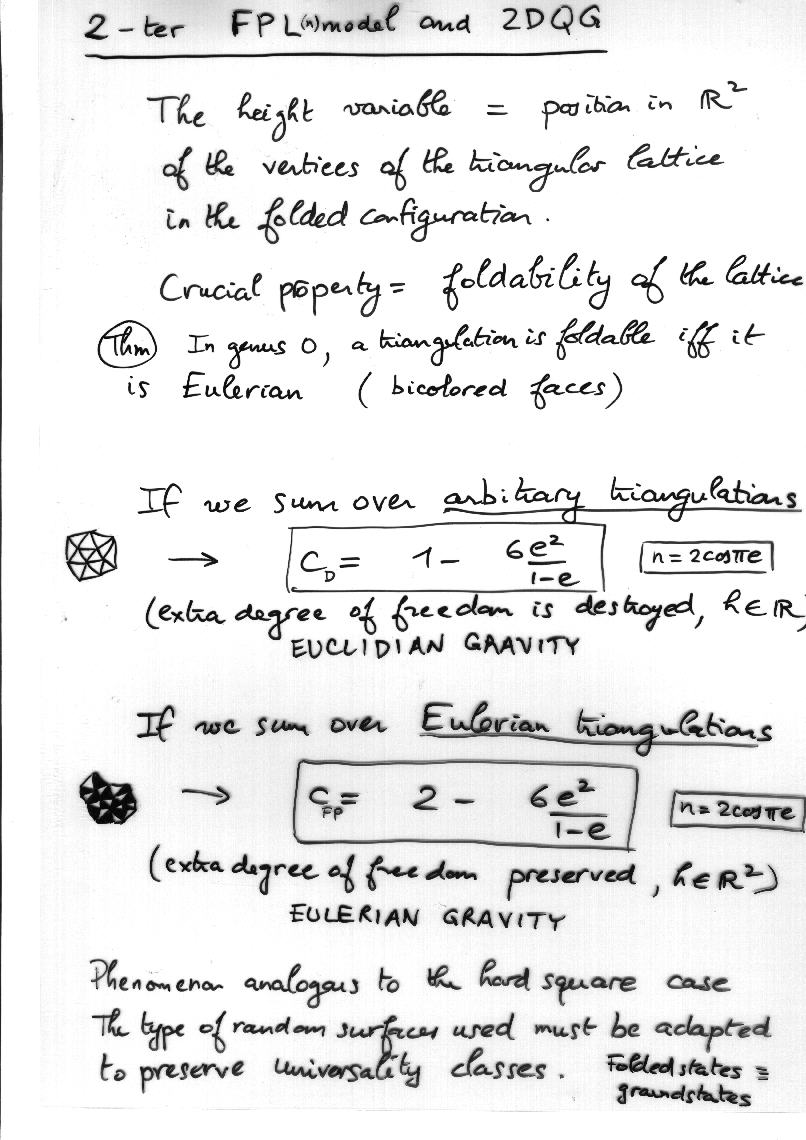 2-ter FPL(n) model and 2DQG
The height variable = position in ℝ²
of the vertices of the triangular lattice
in the folded configuration.
Crucial property = foldability of the lattice
Thm In genus 0, a triangulation is foldable iff it
is Eulerian (bicolored faces)
If we sum over arbitrary triangulations
→ C_D = 1 - 6e²/(1-e) n = 2cosπe
(extra degree of freedom is destroyed, h∈ℝ)
EUCLIDIAN GRAVITY
If we sum over Eulerian triangulations
→ C_FP = 2 - 6e²/(1-e) n = 2cosπe
(extra degree of freedom preserved, h∈ℝ²)
EULERIAN GRAVITY
Phenomenon analogous to the hard square case
The type of random surfaces used must be adapted
to preserve universality classes. Folded states ≡
groundstates